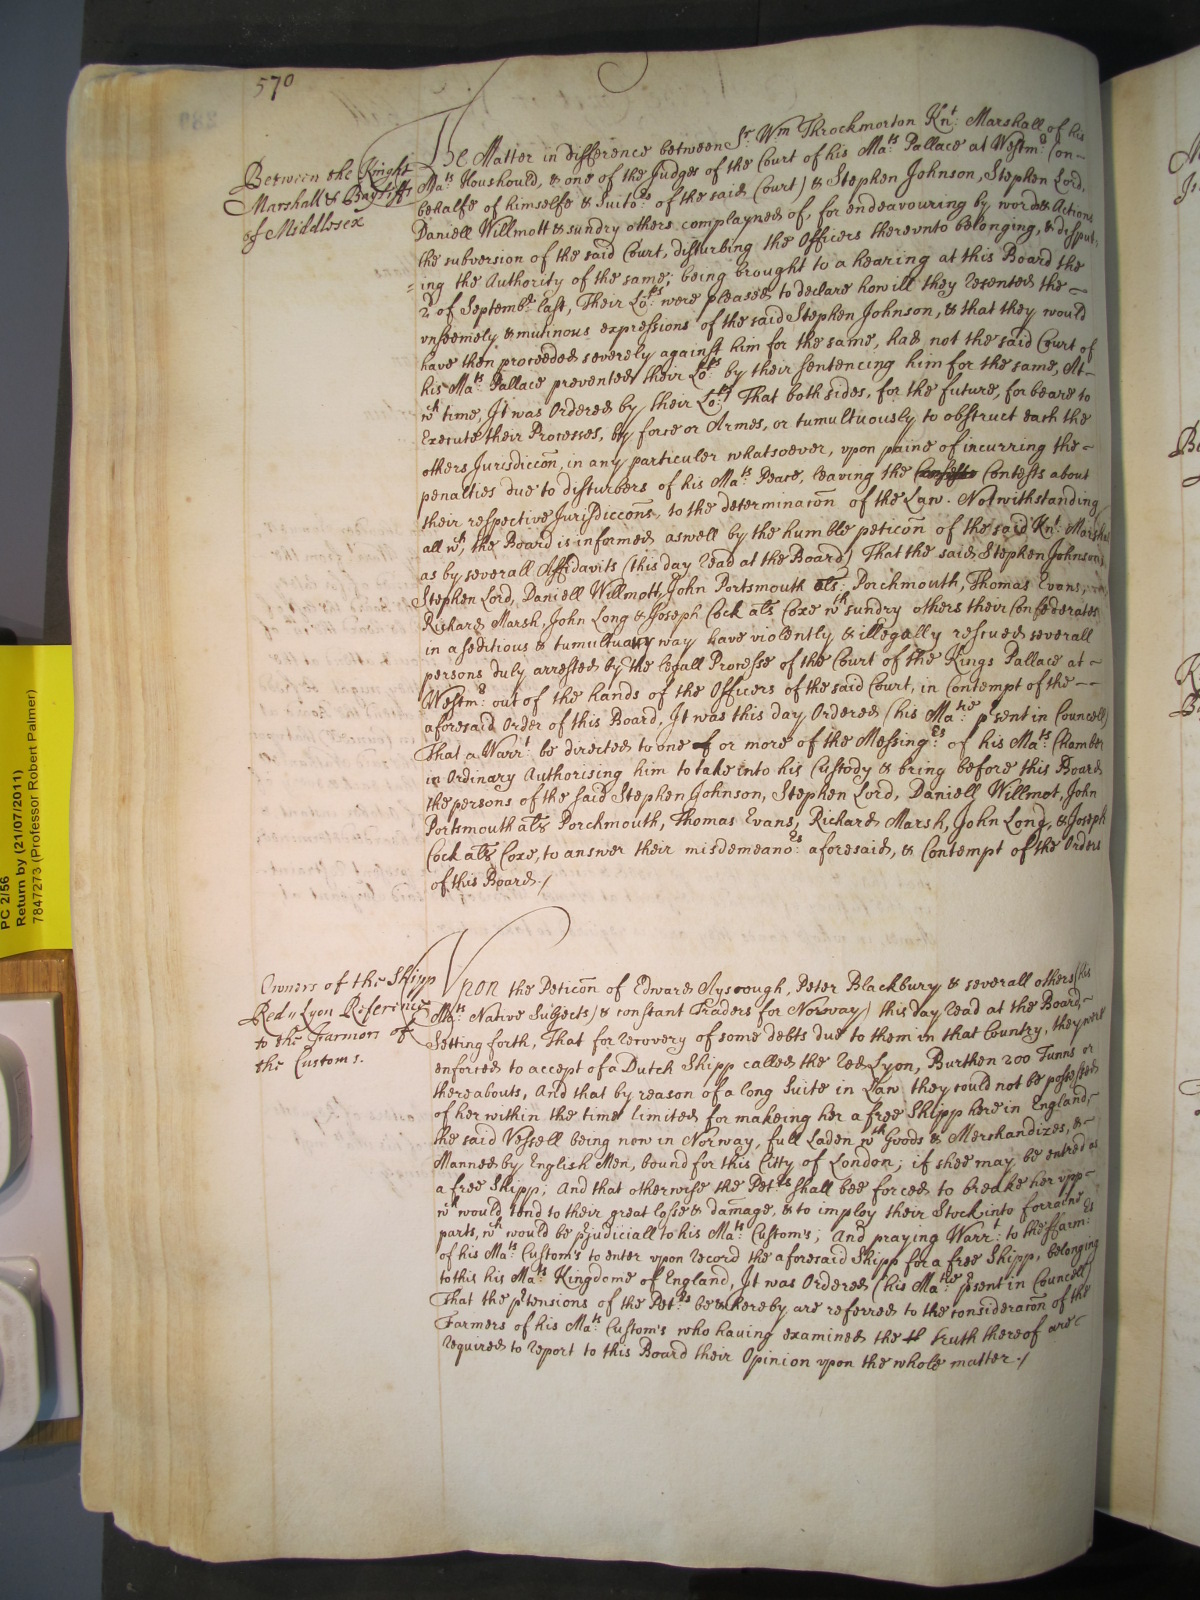 570
Between the Knight
Marshall & Bayliffs
of Middlesex
The Matter in difference between Sr. Wm Throckmorton Knt: Marshall of his
Mats: Houshould, & one of the Judges of the Court of his Mats: Pallace at Westmr: (on-
behalfe of himselfe & Suitors: of the said Court) & Stephen Johnson, Stephen Lord,
Daniell Willmott & sundry others complayned of, for endeavouring by words & Actions
the subversion of the said Court, disturbing the Officers therevnto belonging, & disput-
=ing the Authority of the same; being brought to a hearing at this Board the
2d. of Septembr. last, Their Lops: were pleased to declare how ill they resented the -
vnseemely & mutinous expressions of the said Stephen Johnson, & that they would
have then proceeded severely against him for the same, had not the said Court of
his Mats: Pallace prevented their Lops: by their sentencing him for the same, At-
wch time, It was Ordered by their Lops: That both sides, for the future, forbeare to
Execute their Processes, by force or Armes, or tumultuously to obstruct each the
others Jurisdiccōn, in any particuler whatsoever, vpon paine of incurring the -
penalties due to disturbers of his Mats: Peace, leaving the Contests about
their respective Jurisdiccōns, to the determinacōn of the Law. Notwithstanding
all wch, the Board is informed aswell by the humble peticōn of the said Knt: Marshall
as by severall Affidavits (this day read at the Board) That the said Stephen Johnson,
Stephen Lord, Daniell Willmott, John Portsmouth als: Porchmouth, Thomas Evans,
Richard Marsh, John Long & Joseph Cock als Coxe wth sundry others their Confederates
in a seditious & tumultuary way have violently & illegally rescued severall
persons duly arrested by the legall Processe of the Court of the Kings Pallace at -
Westmr: out of the hands of the Officers of the said Court, in Contempt of the --
aforesaid Order of this Board, It was this day Ordered (his Matie: p'sent in Councell)
That a Warrt: be directed to one or more of the Messingrs: of his Mats: Chamber
in Ordinary Authorising him to take into his Custody & bring before this Board
the persons of the said Stephen Johnson, Stephen Lord, Daniell Willmot, John
Portsmouth als Porchmouth, Thomas Evans, Richard Marsh, John Long, & Joseph
Cock als Coxe, to answer their misdemeanors: aforesaid, & Contempt of the Orders
of this Board./
Owners of the Shipp
Red" Lyon Reference
to the Farmors of
the Customs.
Vpon the Peticōn of Edward Ayscough, Peter Blackbury & severall others (his
Mats: Native Subjects) & constant Traders for Norway) this day read at the Board -
Setting forth, That for recovery of some debts due to them in that Country, they were
enforced to accept of a Dutch Shipp called the Red Lyon, Burthen 200 Tunns or
thereabouts, And that by reason of a long Suite in Law they could not be possessed
of her within the time limited for makeing her a free Shipp here in England,-
the said Vessell being now in Norway, full Laden wth Goods & Merchandizes, & -
Manned by English Men, bound for this Citty of London; if shee may be entred as
a free Shipp; And that otherwise the Petrs shall bee forced to breake her vpp -
wch would tend to their great losse & dam̄age, & to imploy their Stock into forraine
parts, wch would be p'judiciall to his Mats: Customs; And praying Warrt: to the Farmrs:
of his Mats: Customs to enter vpon record the aforesaid Shipp for a free Shipp, belonging
to this his Mats: Kingdome of England, It was Ordered (his Matie: p'sent in Councell)
That the p'tensions of the Petrs: be & hereby are referred to the consideracōn of the
Farmers of his Mats: Customs who having examined the truth thereof are -
required to report to this Board their Opinion vpon the whole matter./
PC 2/56
Return by (21/07/2011)
7847273 (Professor Robert Palmer)